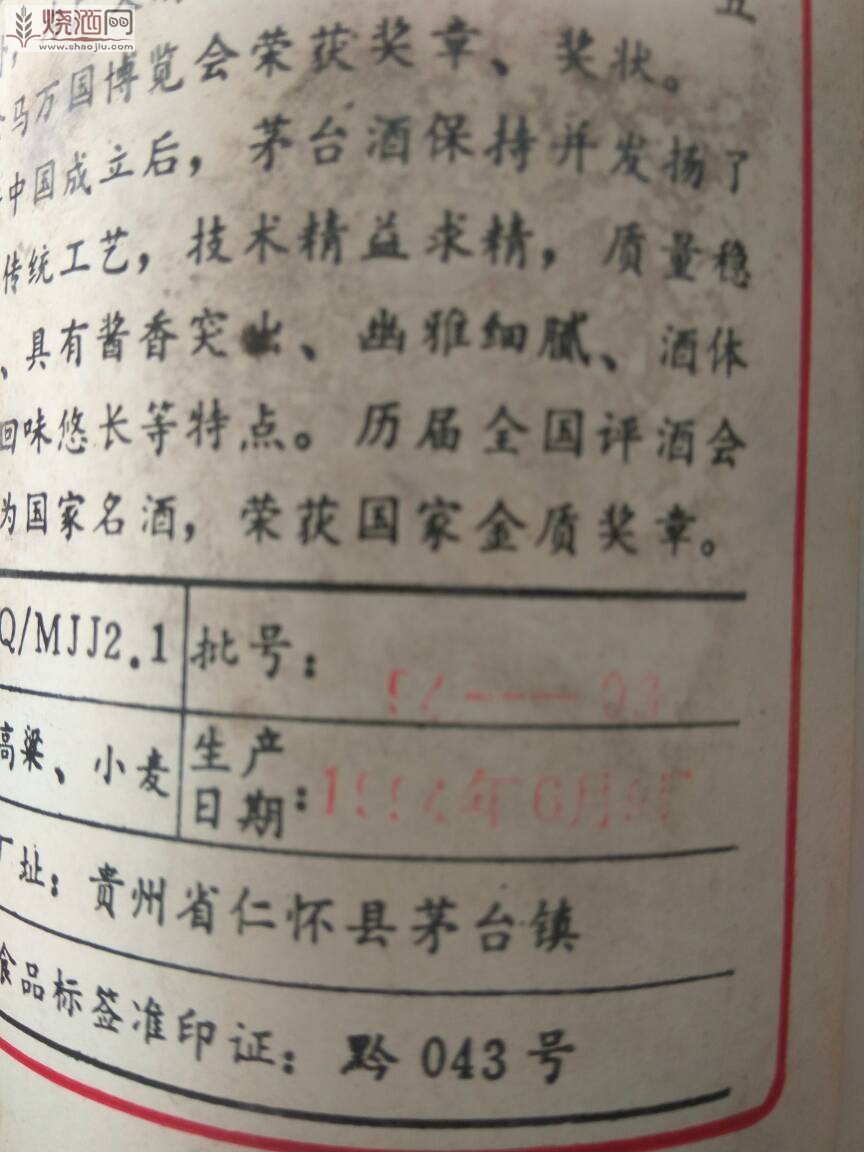 烧酒网
www.shaojiu.com
马万国博览会荣获奖章、奖状。
中国成立后，茅台酒保持并发扬了
传统工艺，技术精益求精，质量稳
、具有酱香突出、幽雅细腻、酒体
回味悠长等特点。历届全国评酒会
为国家名酒，荣获国家金质奖章。
Q/MJJ2.1 批号：
高粱、小麦 生产日期：年6月
厂址：贵州省仁怀县茅台镇
食品标签准印证：黔043号